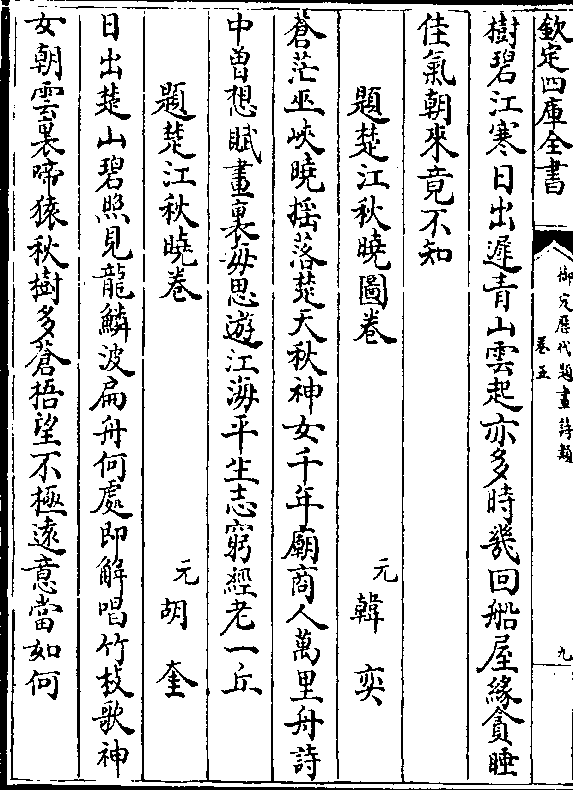 欽定四庫全書
御定歷代題畫詩類
卷五
九
樹碧江寒日出遲青山雲起亦多時幾回船屋緣貪睡
佳氣朝來竟不知
題楚江秋曉圖卷
元韓奕
蒼茫巫峽曉揺落楚天秋神女千年廟商人萬里舟詩
中曽想賦畫裏每思遊江海平生志窮經老一丘
題楚江秋曉卷
元胡奎
日出楚山碧照見龍鱗波扁舟何處郎解唱竹枝歌神
女朝雲裏啼猿秋樹多蒼捂望不極遠意當如何